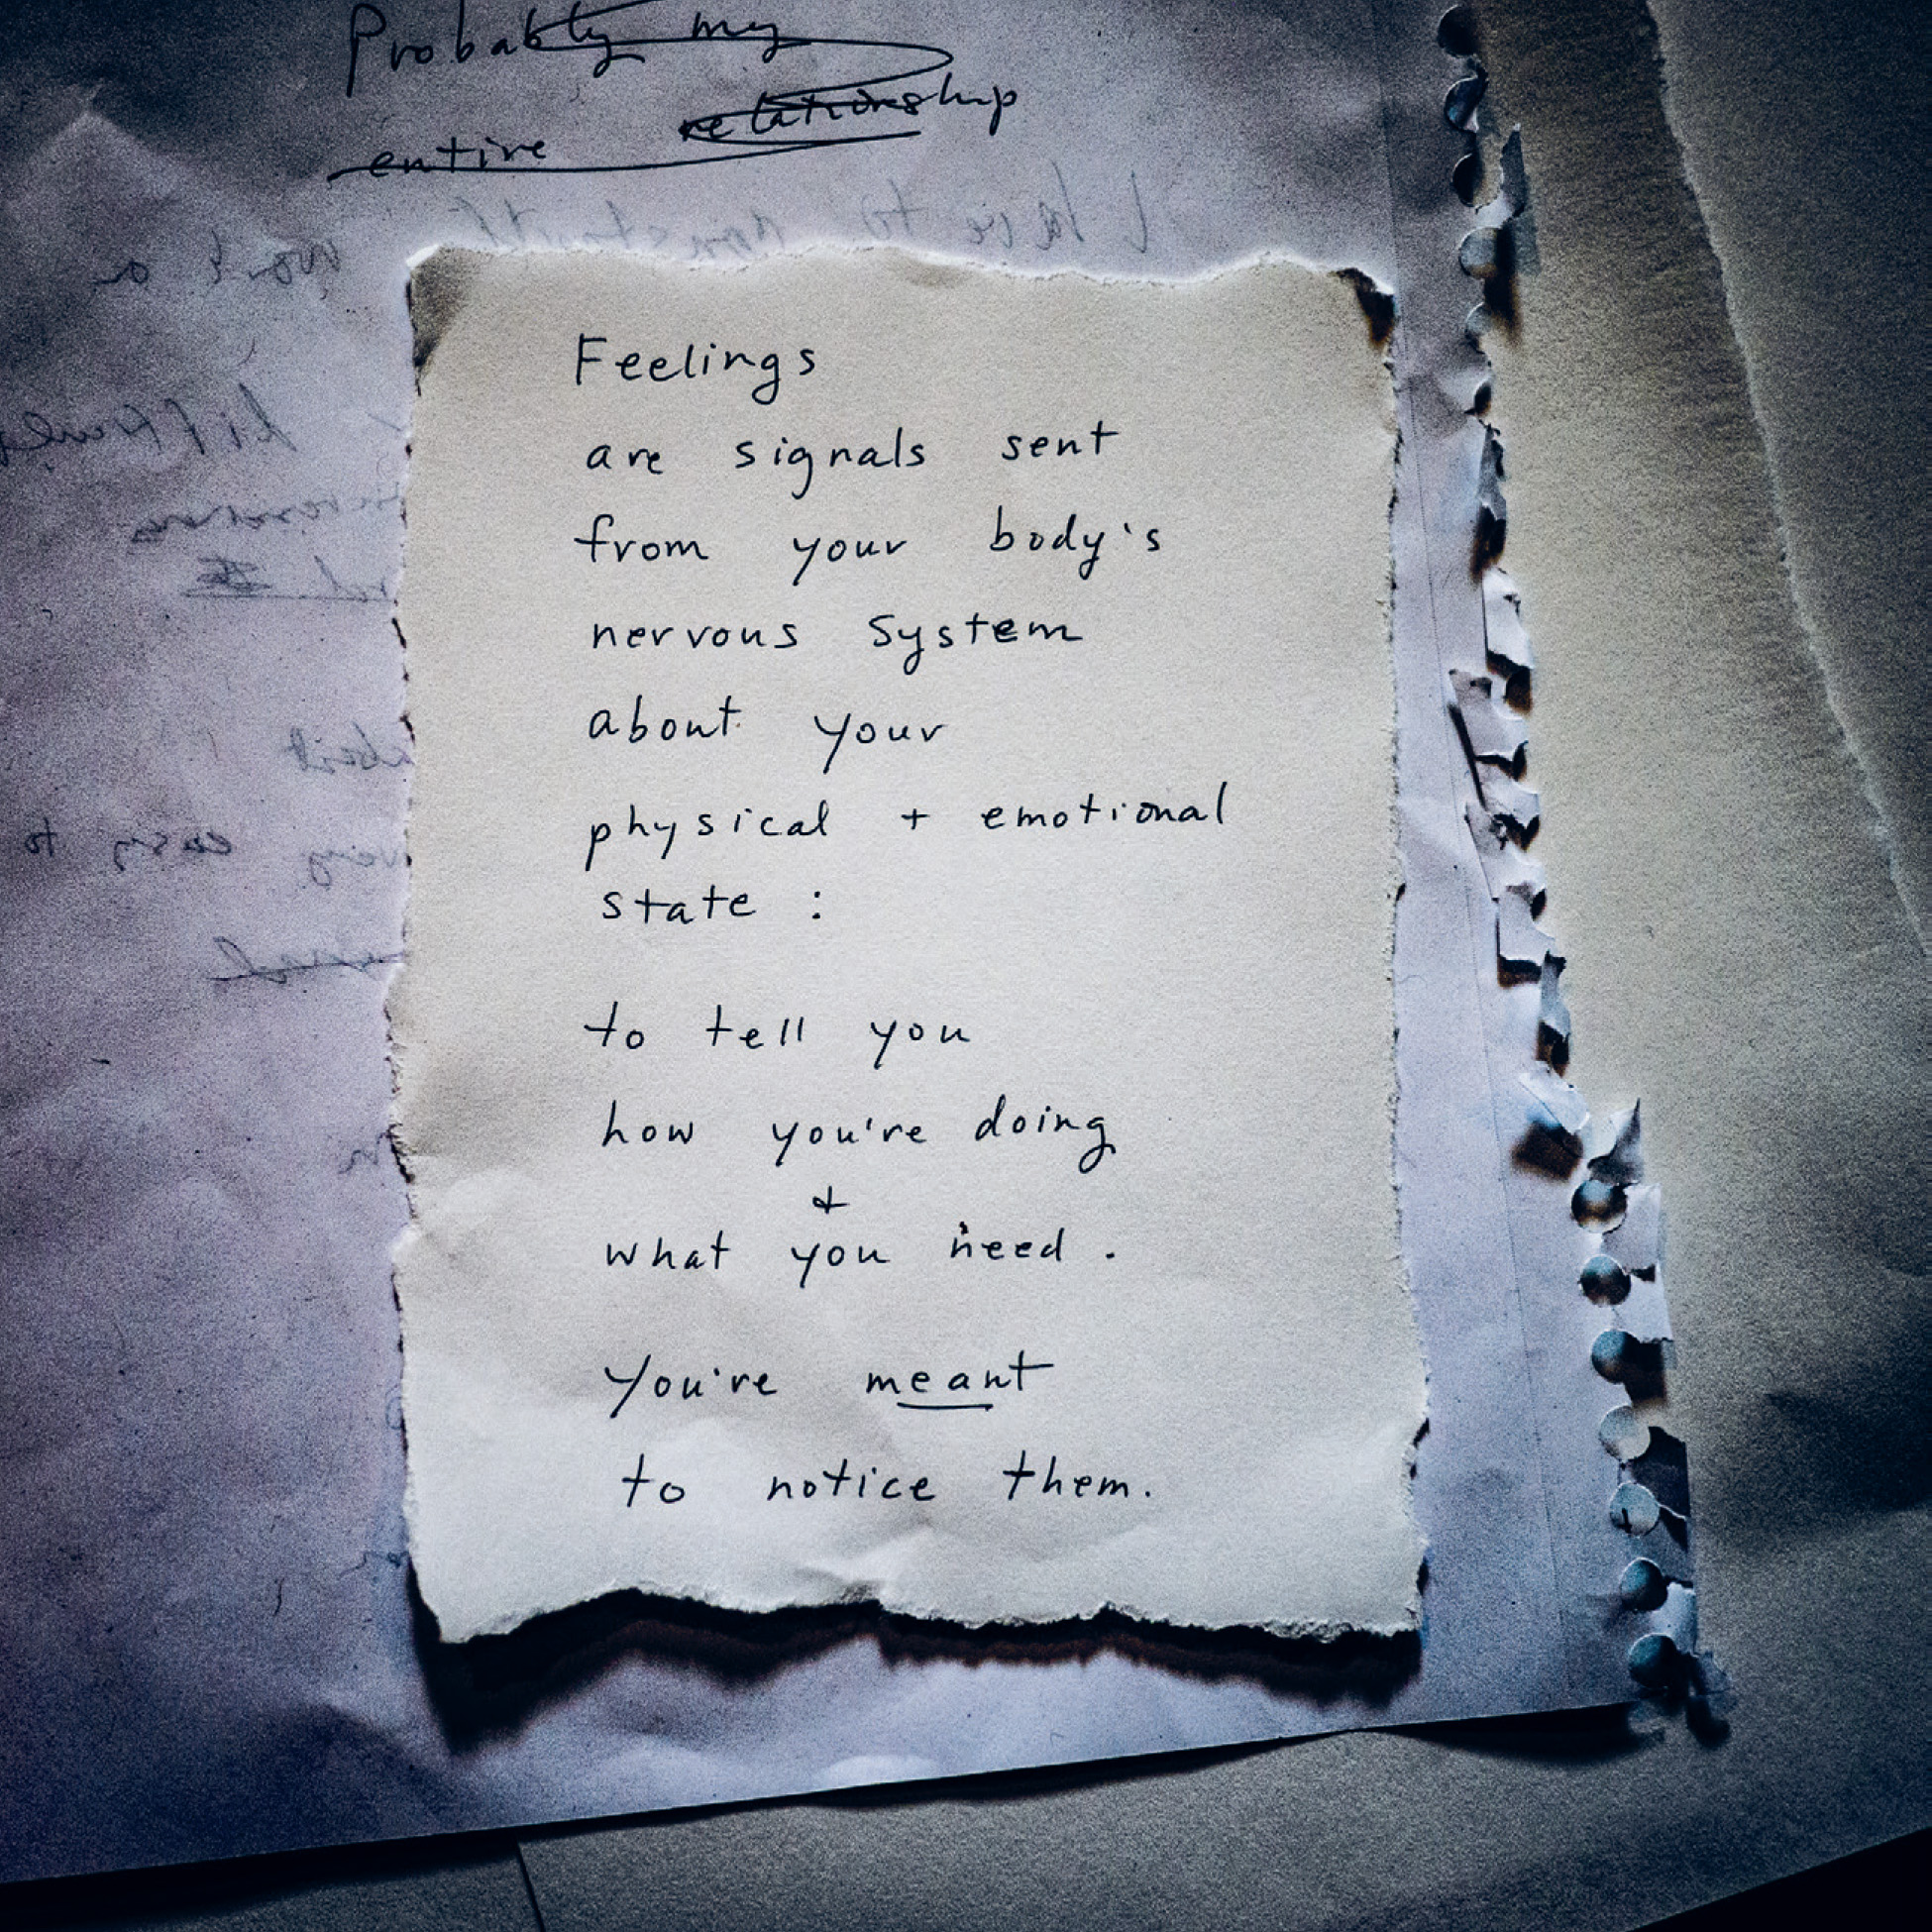 Probably my
entire relationship
Feelings
are signals sent
from your body's
nervous system
about your
physical + emotional
state :
to tell you
how you're doing
+
what you need .
You're meant
to notice them.